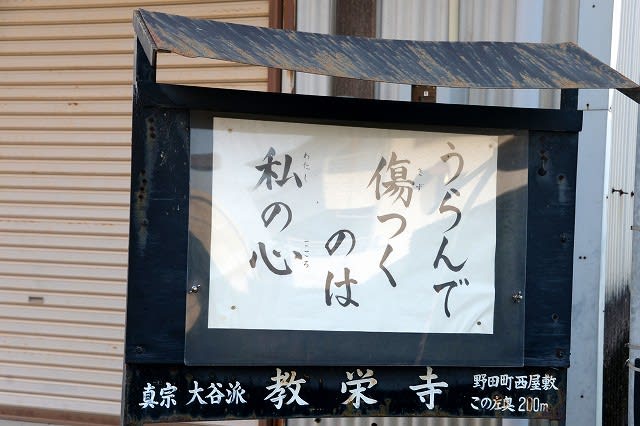 うらんで
傷つく
のは
私の心
きず
わたし
こころ
真宗 大谷派 教栄寺
野田町西屋敷
この左奥200m